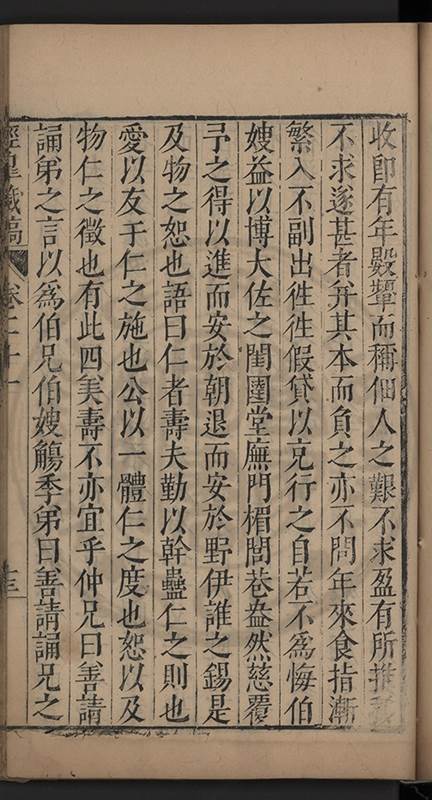 收卽有年觳𨏥而稱佃人之艱不求盈有所推
不求遂甚者弁其本而負之亦不問年來食指漸
繁入不副出徃徃假貸以克行之自若不爲悔伯
嫂益以博大佐之閨圍堂廡門楣閭巷盎然慈覆
予之得以進而安於朝退而安於野伊誰之錫是
及物之恕也語曰仁者壽夫勤以幹蠱仁之則也
愛以友于仁之施也公以一體仁之度也恕以及
物仁之徵也有此四美壽不亦宜乎仲兄曰善請
誦弟之言以爲伯兄伯嫂觴季弟曰善請誦兄之
皇藏稿 卷二十一 三